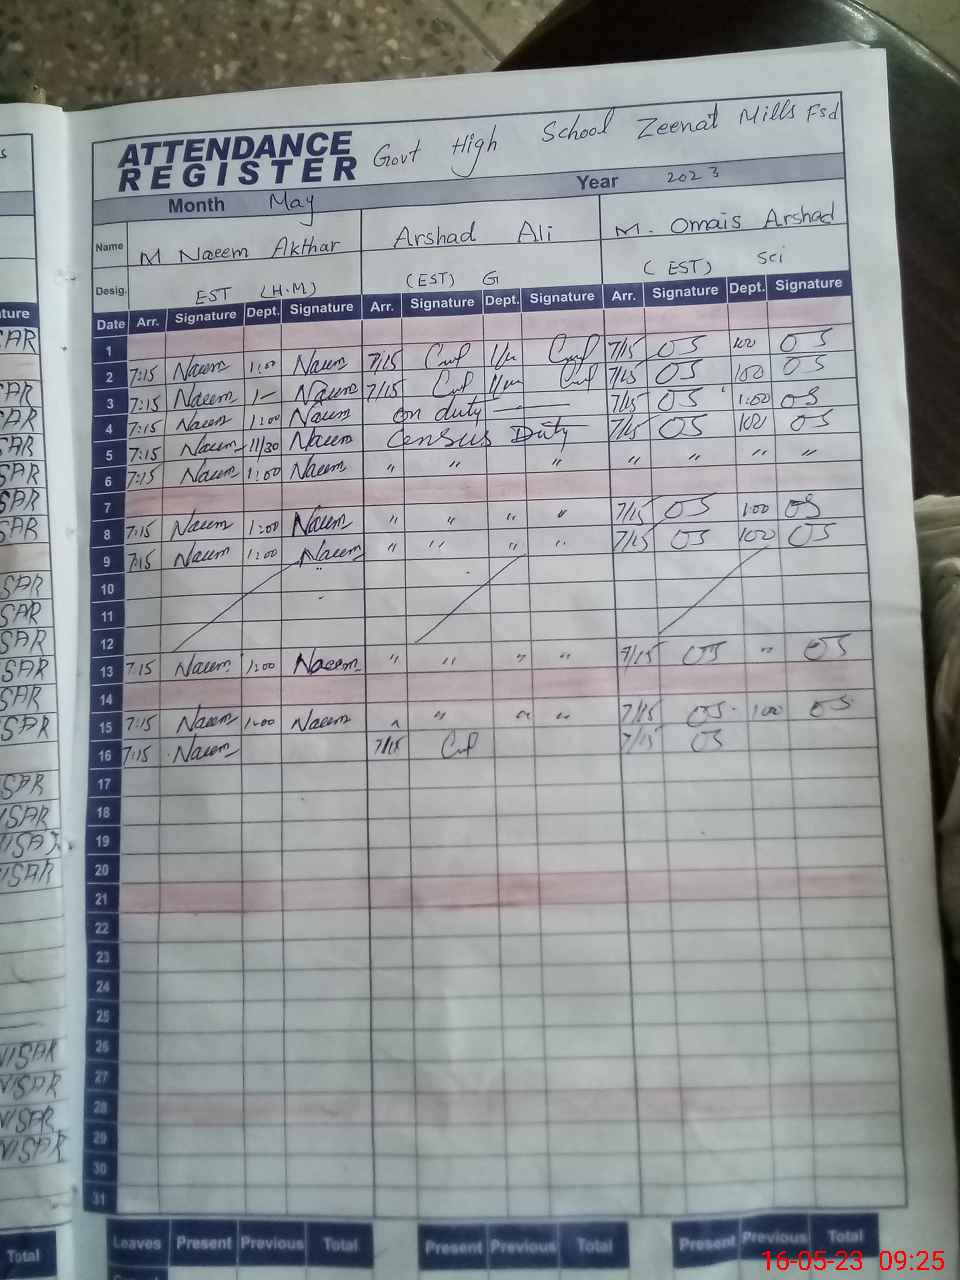 ATTENDANCE REGISTER Govt High School Zeenat Mills Fsd
Month May Year 2023
Name M Naeem Akthar Arshad Ali M. Omais Arshad
Desig. EST (H.M) (EST) G (EST) Sci
Date Arr. Signature Dept. Signature Arr. Signature Dept. Signature Arr. Signature Dept. Signature
1
2 7:15 Naeem 1:00 Naeem 7/15 7/15 OS 100 OS
3 7:15 Naeem 1— Naeem 7/15 7/15 OS 100 OS
4 7:15 Naeem 1:00 Naeem on duty — 7/15 OS 1:00 OS
5 7:15 Naeem 11/30 Naeem Census Duty 7/15 OS 100 OS
6 7:15 Naeem 1:00 Naeem " " " " " " "
7
8 7:15 Naeem 1:00 Naeem " " " " 7/15 OS 1:00 OS
9 7:15 Naeem 1:00 Naeem " " " " 7/15 OS 100 OS
10
11
12
13 7:15 Naeem 1:00 Naeem " " " " 7/15 OS " OS
14
15 7:15 Naeem 1:00 Naeem " " " " 7/15 OS 100 OS
16 7:15 Naeem 7/15 7/15 OS
17
18
19
20
21
22
23
24
25
26
27
28
29
30
31
Leaves Present Previous Total Present Previous Total Present Previous Total
Total
NISAR
NISAR
NISAR
NISAR
16-05-23 09:25